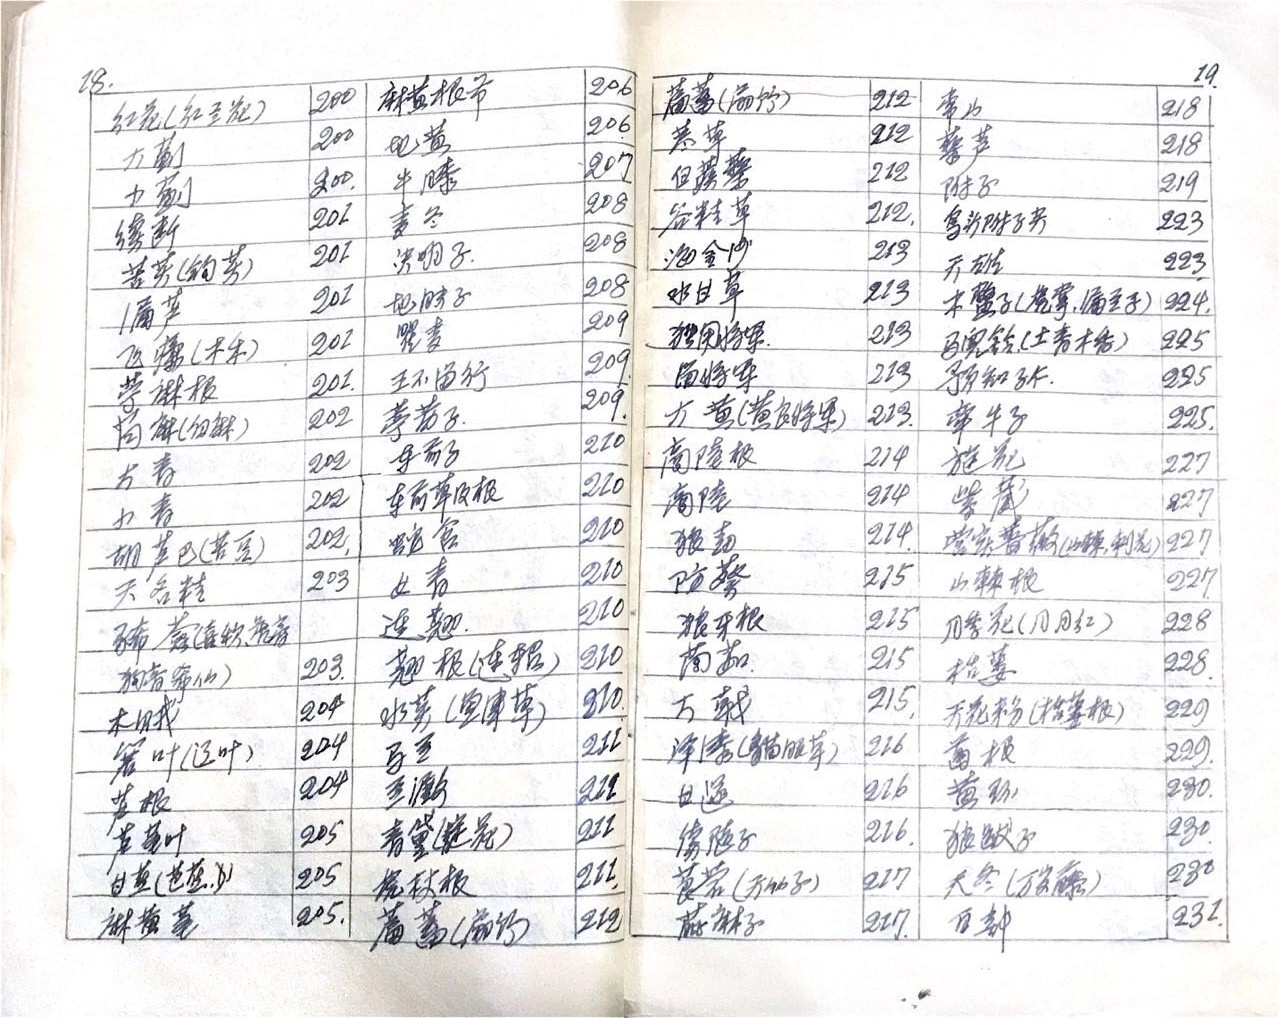 18.
红花(红兰花) 200 麻黄根节 206
大蓟 200 地黄 206
小蓟 200. 牛膝 207
续断 201 麦冬 208
苦芺(钩芺) 201 决明子. 208
漏芦 201 地肤子 208
飞廉(木禾) 201 瞿麦 209
苧麻根 201. 王不留行 209
苘麻(白麻) 202 葶苈子 209.
大青 202 车前子 210
小青 202 车前草及根 210
胡芦巴(苦豆) 202. 210
天名精 203 女青 210
连翘. 210
203. 翘根(连轺) 210
木贼 204 水英(鱼津草) 210
箬叶(辽叶) 204 马兰 211
芦根 204 兰澱 211
芦茎叶 205 青黛(靛花) 211
甘蕉(芭蕉) 205 虎杖根 211.
麻黄茎 205. 萹蓄(扁竹) 212
19.
萹蓄(扁竹) 212 常山 218
荩草 212 藜芦 218
白蒺藜 212 附子 219
谷精草 212. 乌头附子尖 223
海金沙 213 天雄 223
水甘草 213 木鳖子(漏苓子) 224.
独用将军. 213 马兜铃.(土青木香) 225
留将军 213 预知子. 225
大黄(黄良将军) 213. 牵牛子 225.
商陆根 214 旋花 227
商陆 214 紫葳 227
狼毒 214. 营实蔷薇(山棘.刺花) 227
防葵 215 山棘根 227
狼牙根 215 月季花(月月红) 228
䕡茹 215 栝蒌 228.
大戟 215. 天花粉(栝蒌根) 229
泽漆(猫眼草) 216 葛根 229.
甘遂 216 黄环 230.
续随子 216. 狼跋子 230
莨菪(天仙子) 217 天冬(万岁藤) 230
蓖麻子 217. 百部 231.